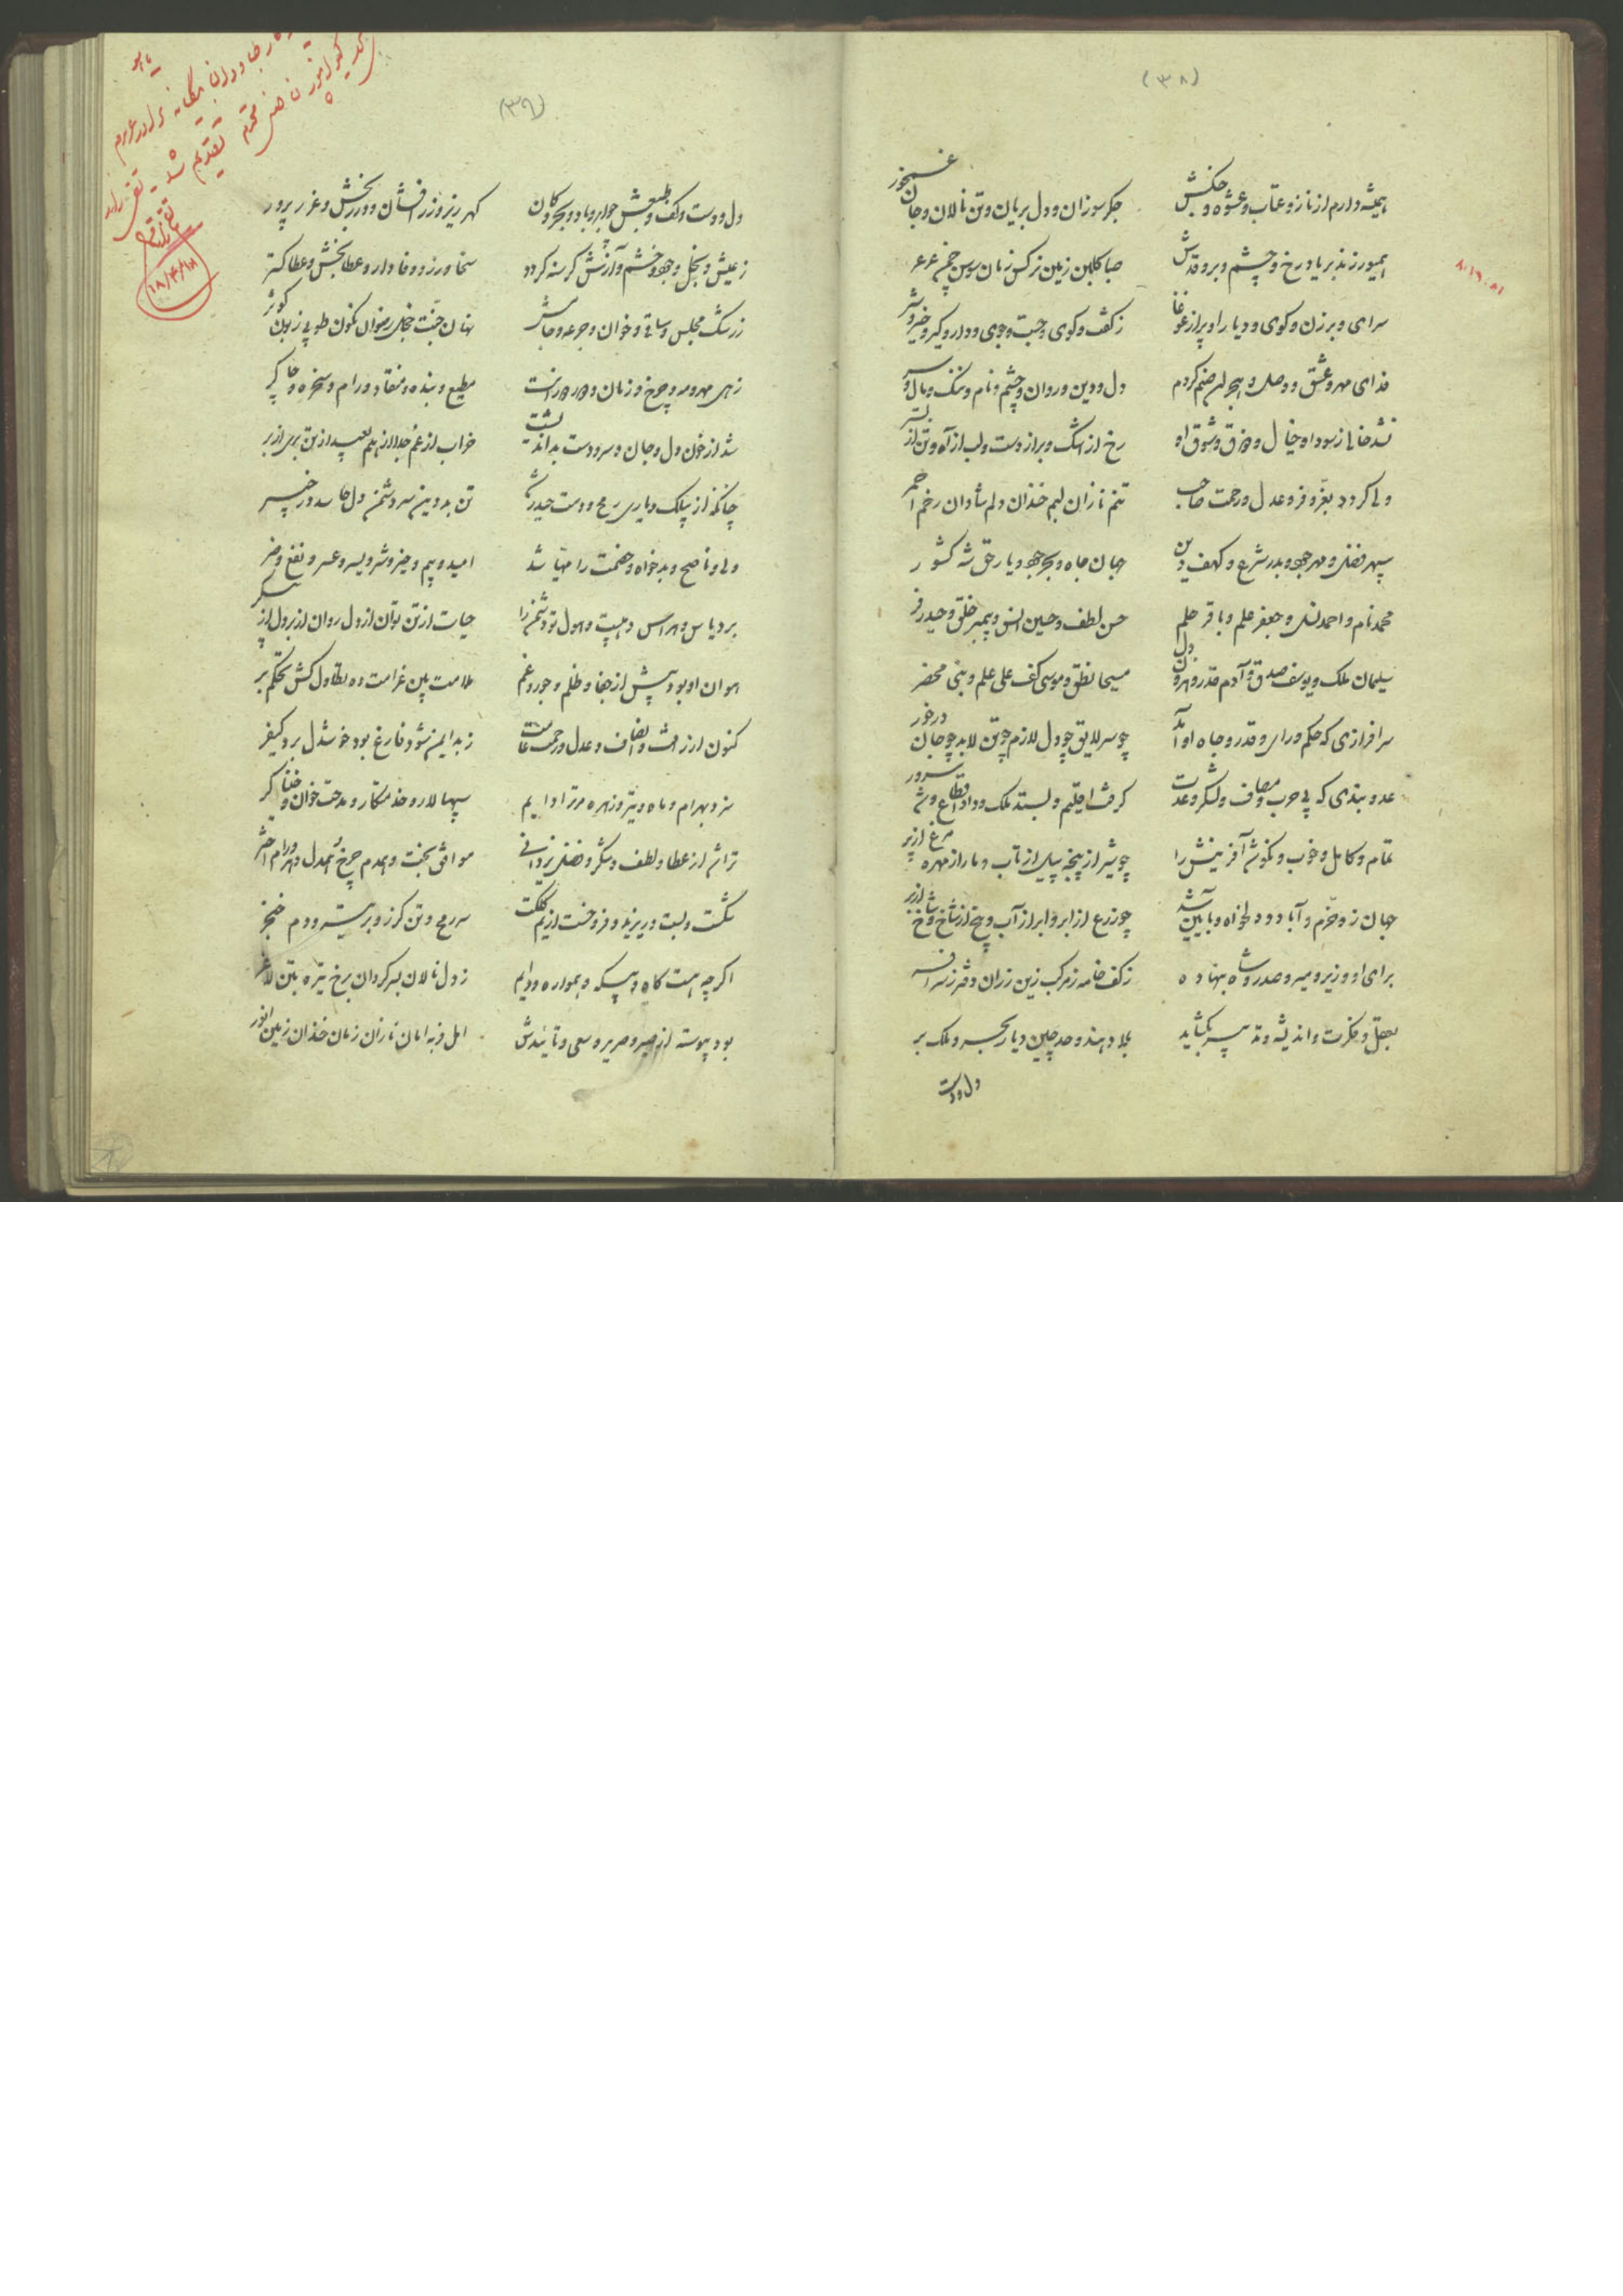 (۳۸)
همیشه دارم از ناز و عتاب و عشوه و جنکش جکر سوزان و دل بریان و تن نالان و جان غمخور
همیورزند بر یاد رخ و چشم و بر و قدش صبا کلبن زمین نرکس زمان سوسن چمن عرعر
سرای و برزن و کوی و دیار او پر از غوغا ز کفت و کوی و جست و جوی و دار و کیر و خیر و شر
فدای مهر و عشق و وصل و هجر آن صنم کردم دل و دین و روان و چشم و نام و ننک و مال و سر
نشد خالی ز سودا و خیال و ذوق و شوق او رخ از اشک و بر از دست و لب از آه و تن از بستر
ولی کردد بعزّ و فر و عدل و رحمت صاحب تنم نازان لبم خندان دلم شادان رخم احمر
سپهر فضل و مهر جود و بدر شرع و کهف دین جهان جاه و بحر جود و یار حق شه کشور
محمد نام و احمد نسل و جعفر علم و باقر حلم حسن لطف و حسین انس و پیمبر خلق و حیدر فر
سلیمان ملک و یوسف صدق و آدم قدر و هرون دل مسیحا نطق و موسی کف علی علم و نبی محضر
سرافرازی که حکم و رای و قدر و جاه او آمد چو سر لایق چو دل لازم چو تن لابد چو جان درخور
عدو بندی که پی حرب و مصاف و لشکر و عدت کرفت اقلیم و بستد ملک و داد اقطاع و شد سرور
تمام و کامل و خوب و نکو شد آفرینش را چو شیر از پنجه پیل از ناب و مار از مهره مرغ از پر
جهان زو خرّم و آباد و دلخواه و بآیین شد چو زرع از ابر و ابر از آب و بیخ از شاخ و شاخ از بر
برای او وزیر و میر و صدر و شاه بنهاده ز کف خامه ز مرکب زین ز ران دفتر ز سر افسر
بعقل و فکرت و اندیشه و تدبیر بکشاید بلاد هند و حد چین دیار بحر و ملک بر
دل و دست
۸۱-۱۶-۸
(۳۹)
دل و دست و کف و طبعش چو ابر و باد و بحر و کان کهر ریز و زر افشان و درر بخش و غرر پرور
ز عیش و بخل و جود و خشم و آزش کرسنه کردد سخا ورز و وفادار و عطا بخش و عطا کستر
ز رشک مجلس و ساقی و خوان و جرعه و جامش نهان جنت خجل رضوان نکون طوبی زبون کوثر
زهی مهر و مه و چرخ و زمان و دور دورانت مطیع و بنده و منقاد و رام و سخره و چاکر
شد از خون دل و جان و سر و دست بداندیشت خراب از غم جدا از هم بعید از تن بری از بر
چنانکه از پیلک و یاری رمح و دست حیدرت تن بد دین سر دشمن دل حاسد در خیبر
ولی و ناصح و بدخواه و خصمت را مهیّا شد امید و بیم و خیر و شر و یسر و عسر و نفع و ضر
برد یاس و هراس و هیبت و هول تو دشمن را حیات از تن توان از دل روان از بر دل از پیکر
هر آن او بود پیش از جفا و ظلم و جور و غم ملامت بین غرامت ده تطاول کش تحکم بر
کنون از رافت و انصاف و عدل و رحمت عامت ز بد ایمن شود فارغ بود خوشدل برد کیفر
سزد بهرام و ماه و تیر و زهره مر ترا دایم سپهسالار و خدمتکار و مدحت خوان و خنیاکر
ترا شد از عطا و لطف و شکر و فضل یزدانی موافق بخت و همدم چرخ و همدل دهر و رام اختر
شکست و بست و ریزید و فروخست از یم کلکت سر رمح و تن کرز و بر تیر و دم خنجر
اکرچه هست کاه و بیکه و همواره و دایم ز دل نالان بسر کردان برخ تیره بتن لاغر
بود پیوسته از صیر و صریر و سعی و تائیدش امل فربه امان نازان زمان خندان زمین انور
تقدیم شد
۱۸/۴/۱۸